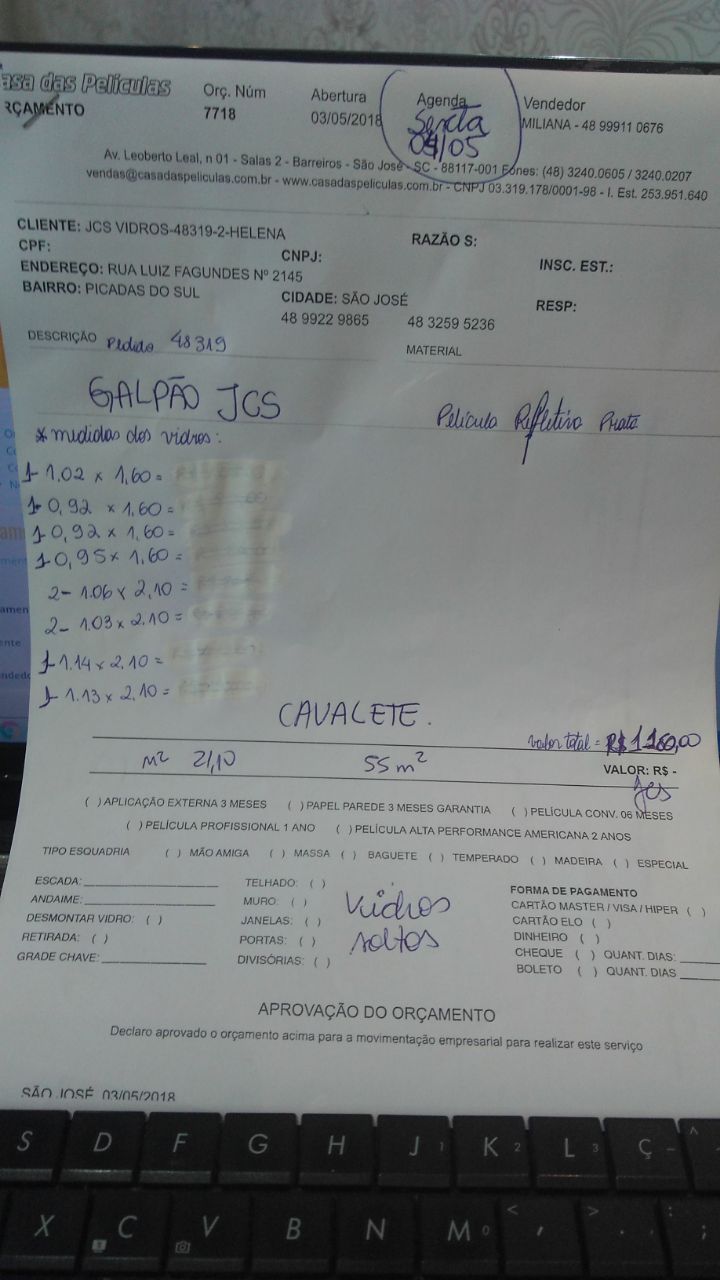 asa das Películas
RÇAMENTO
Orç. Núm
7718
Abertura
03/05/2018
Agenda
Sexta
04/05
Vendedor
MILIANA - 48 99911 0676
Av. Leoberto Leal, n 01 - Salas 2 - Barreiros - São José - SC - 88117-001 Fones: (48) 3240.0605 / 3240.0207
vendas@casadaspeliculas.com.br - www.casadaspeliculas.com.br - CNPJ 03.319.178/0001-98 - I. Est. 253.951.640
CLIENTE: JCS VIDROS-48319-2-HELENA
RAZÃO S:
CPF:
CNPJ:
INSC. EST.:
ENDEREÇO: RUA LUIZ FAGUNDES Nº 2145
BAIRRO: PICADAS DO SUL
CIDADE: SÃO JOSÉ
RESP:
48 9922 9865
48 3259 5236
DESCRIÇÃO Pedido 48319
MATERIAL
GALPÃO JCS
Película Refletiva Prata
* medidas dos vidros:
1- 1.02 x 1,60 =
1- 0,92 x 1,60 =
1- 0,92 x 1,60 =
1- 0,95 x 1,60 =
2- 1.06 x 2,10 =
2- 1.03 x 2,10 =
1- 1.14 x 2,10 =
1- 1.13 x 2,10 =
CAVALETE.
valor total = R$ 1.160,00
M² 21,10
55 m²
VALOR: R$ -
Jcs
( ) APLICAÇÃO EXTERNA 3 MESES ( ) PAPEL PAREDE 3 MESES GARANTIA ( ) PELÍCULA CONV. 06 MESES
( ) PELÍCULA PROFISSIONAL 1 ANO ( ) PELÍCULA ALTA PERFORMANCE AMERICANA 2 ANOS
TIPO ESQUADRIA ( ) MÃO AMIGA ( ) MASSA ( ) BAGUETE ( ) TEMPERADO ( ) MADEIRA ( ) ESPECIAL
ESCADA:
ANDAIME:
DESMONTAR VIDRO: ( )
RETIRADA: ( )
GRADE CHAVE:
TELHADO: ( )
MURO: ( )
JANELAS: ( )
PORTAS: ( )
DIVISÓRIAS: ( )
Vidros
soltos
FORMA DE PAGAMENTO
CARTÃO MASTER / VISA / HIPER ( )
CARTÃO ELO ( )
DINHEIRO ( )
CHEQUE ( ) QUANT. DIAS:
BOLETO ( ) QUANT. DIAS
APROVAÇÃO DO ORÇAMENTO
Declaro aprovado o orçamento acima para a movimentação empresarial para realizar este serviço
SÃO JOSÉ, 03/05/2018
S D F G H J 1 K 2 L 3 Ç ^
X C V B N M 0 < , > . : ;